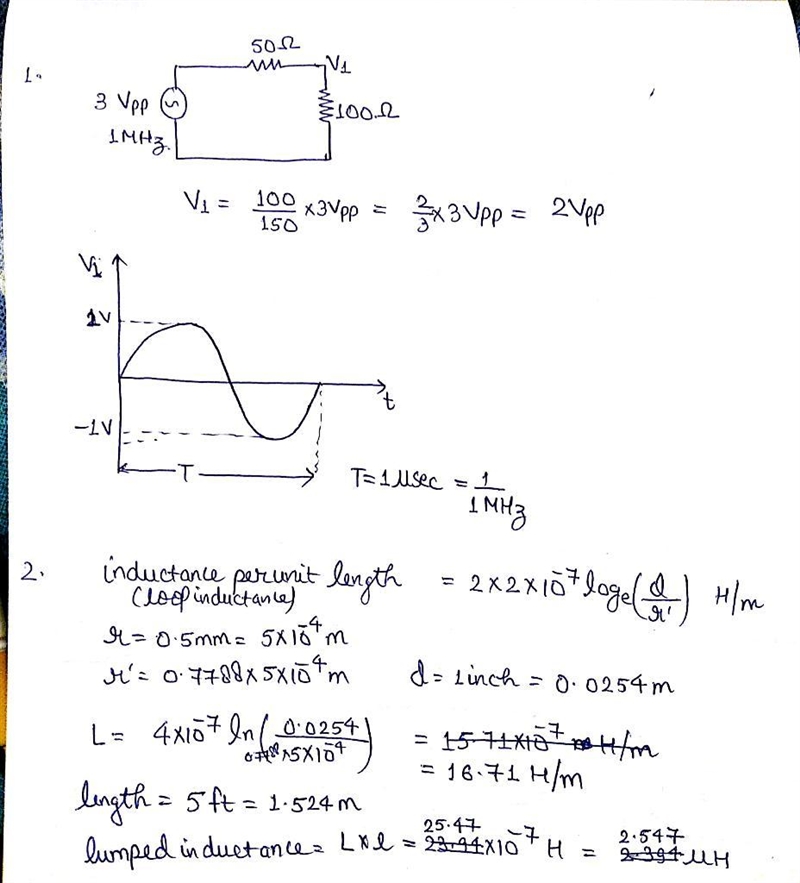 1.
50Ω
V1
3 Vpp
100Ω
1MHz
V1 = 100/150 x3Vpp = 2/3 x 3Vpp = 2Vpp
V1
1V
-1V
t
T
T=1μsec = 1/1MHz
2. inductance per unit length = 2×2×10^-7 loge(d/r') H/m
(loop inductance)
r = 0.5mm = 5×10^-4 m
r' = 0.7788×5×10^-4 m d = 1inch = 0.0254m
L = 4×10^-7 ln(0.0254/0.7788×5×10^-4) = 15.71×10^-7 H/m
= 16.71 H/m
length = 5ft = 1.524m
lumped inductance = L×l = 23.94 25.47 ×10^-7 H = 2.394 2.547 μH